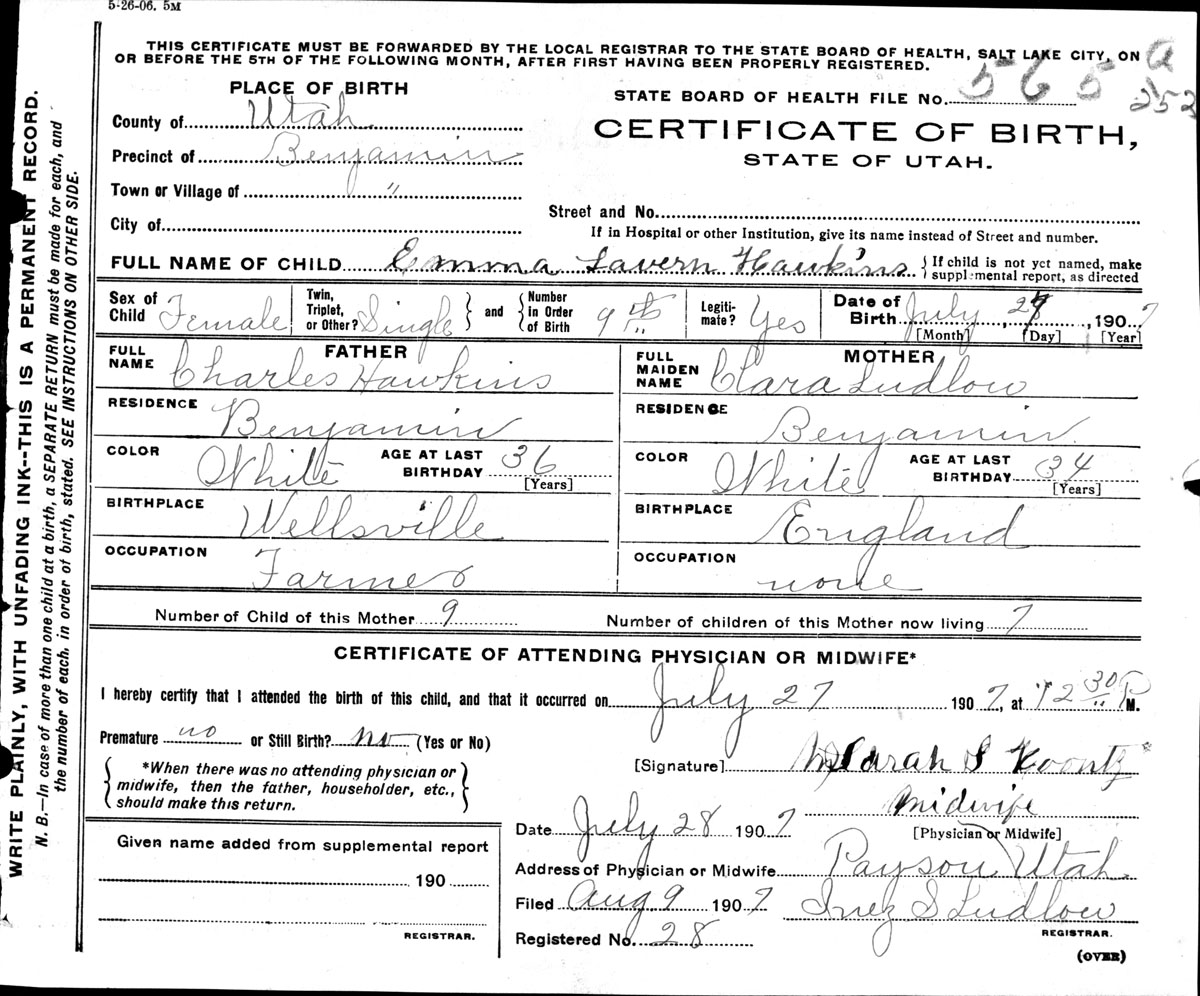 5-26-06. 5M
THIS CERTIFICATE MUST BE FORWARDED BY THE LOCAL REGISTRAR TO THE STATE BOARD OF HEALTH, SALT LAKE CITY, ON
OR BEFORE THE 5TH OF THE FOLLOWING MONTH, AFTER FIRST HAVING BEEN PROPERLY REGISTERED.
a
252
PLACE OF BIRTH
STATE BOARD OF HEALTH FILE No. 565
County of Utah
CERTIFICATE OF BIRTH,
Precinct of Benjamin
STATE OF UTAH.
Town or Village of "
Street and No.
City of
If in Hospital or other Institution, give its name instead of Street and number.
FULL NAME OF CHILD Emma Lavern Hawkins { If child is not yet named, make
supplemental report, as directed
Sex of Child Female
Twin, Triplet, or Other? Single } and { Number in Order of Birth 9th
Legiti-mate? Yes
Date of Birth July 27, 1907
[Month] [Day] [Year]
FATHER
FULL NAME Charles Hawkins
RESIDENCE Benjamin
COLOR White AGE AT LAST BIRTHDAY 36 [Years]
BIRTHPLACE Wellsville
OCCUPATION Farmer
MOTHER
FULL MAIDEN NAME Clara Ludlow
RESIDENCE Benjamin
COLOR White AGE AT LAST BIRTHDAY 34 [Years]
BIRTHPLACE England
OCCUPATION none
Number of Child of this Mother 9 Number of children of this Mother now living 7
CERTIFICATE OF ATTENDING PHYSICIAN OR MIDWIFE*
I hereby certify that I attended the birth of this child, and that it occurred on July 27 1907, at 12 30 P M.
Premature no or Still Birth? no (Yes or No)
*When there was no attending physician or
midwife, then the father, householder, etc.,
should make this return.
[Signature] Sarah S Koontz
Midwife
[Physician or Midwife]
Date July 28 1907
Address of Physician or Midwife Payson Utah
Filed Aug 9 1907 Inez S Ludlow
REGISTRAR.
Registered No. 28
(OVER)
Given name added from supplemental report
190
REGISTRAR.
WRITE PLAINLY, WITH UNFADING INK--THIS IS A PERMANENT RECORD.
N. B.—In case of more than one child at a birth, a SEPARATE RETURN must be made for each, and
the number of each, in order of birth, stated. SEE INSTRUCTIONS ON OTHER SIDE.